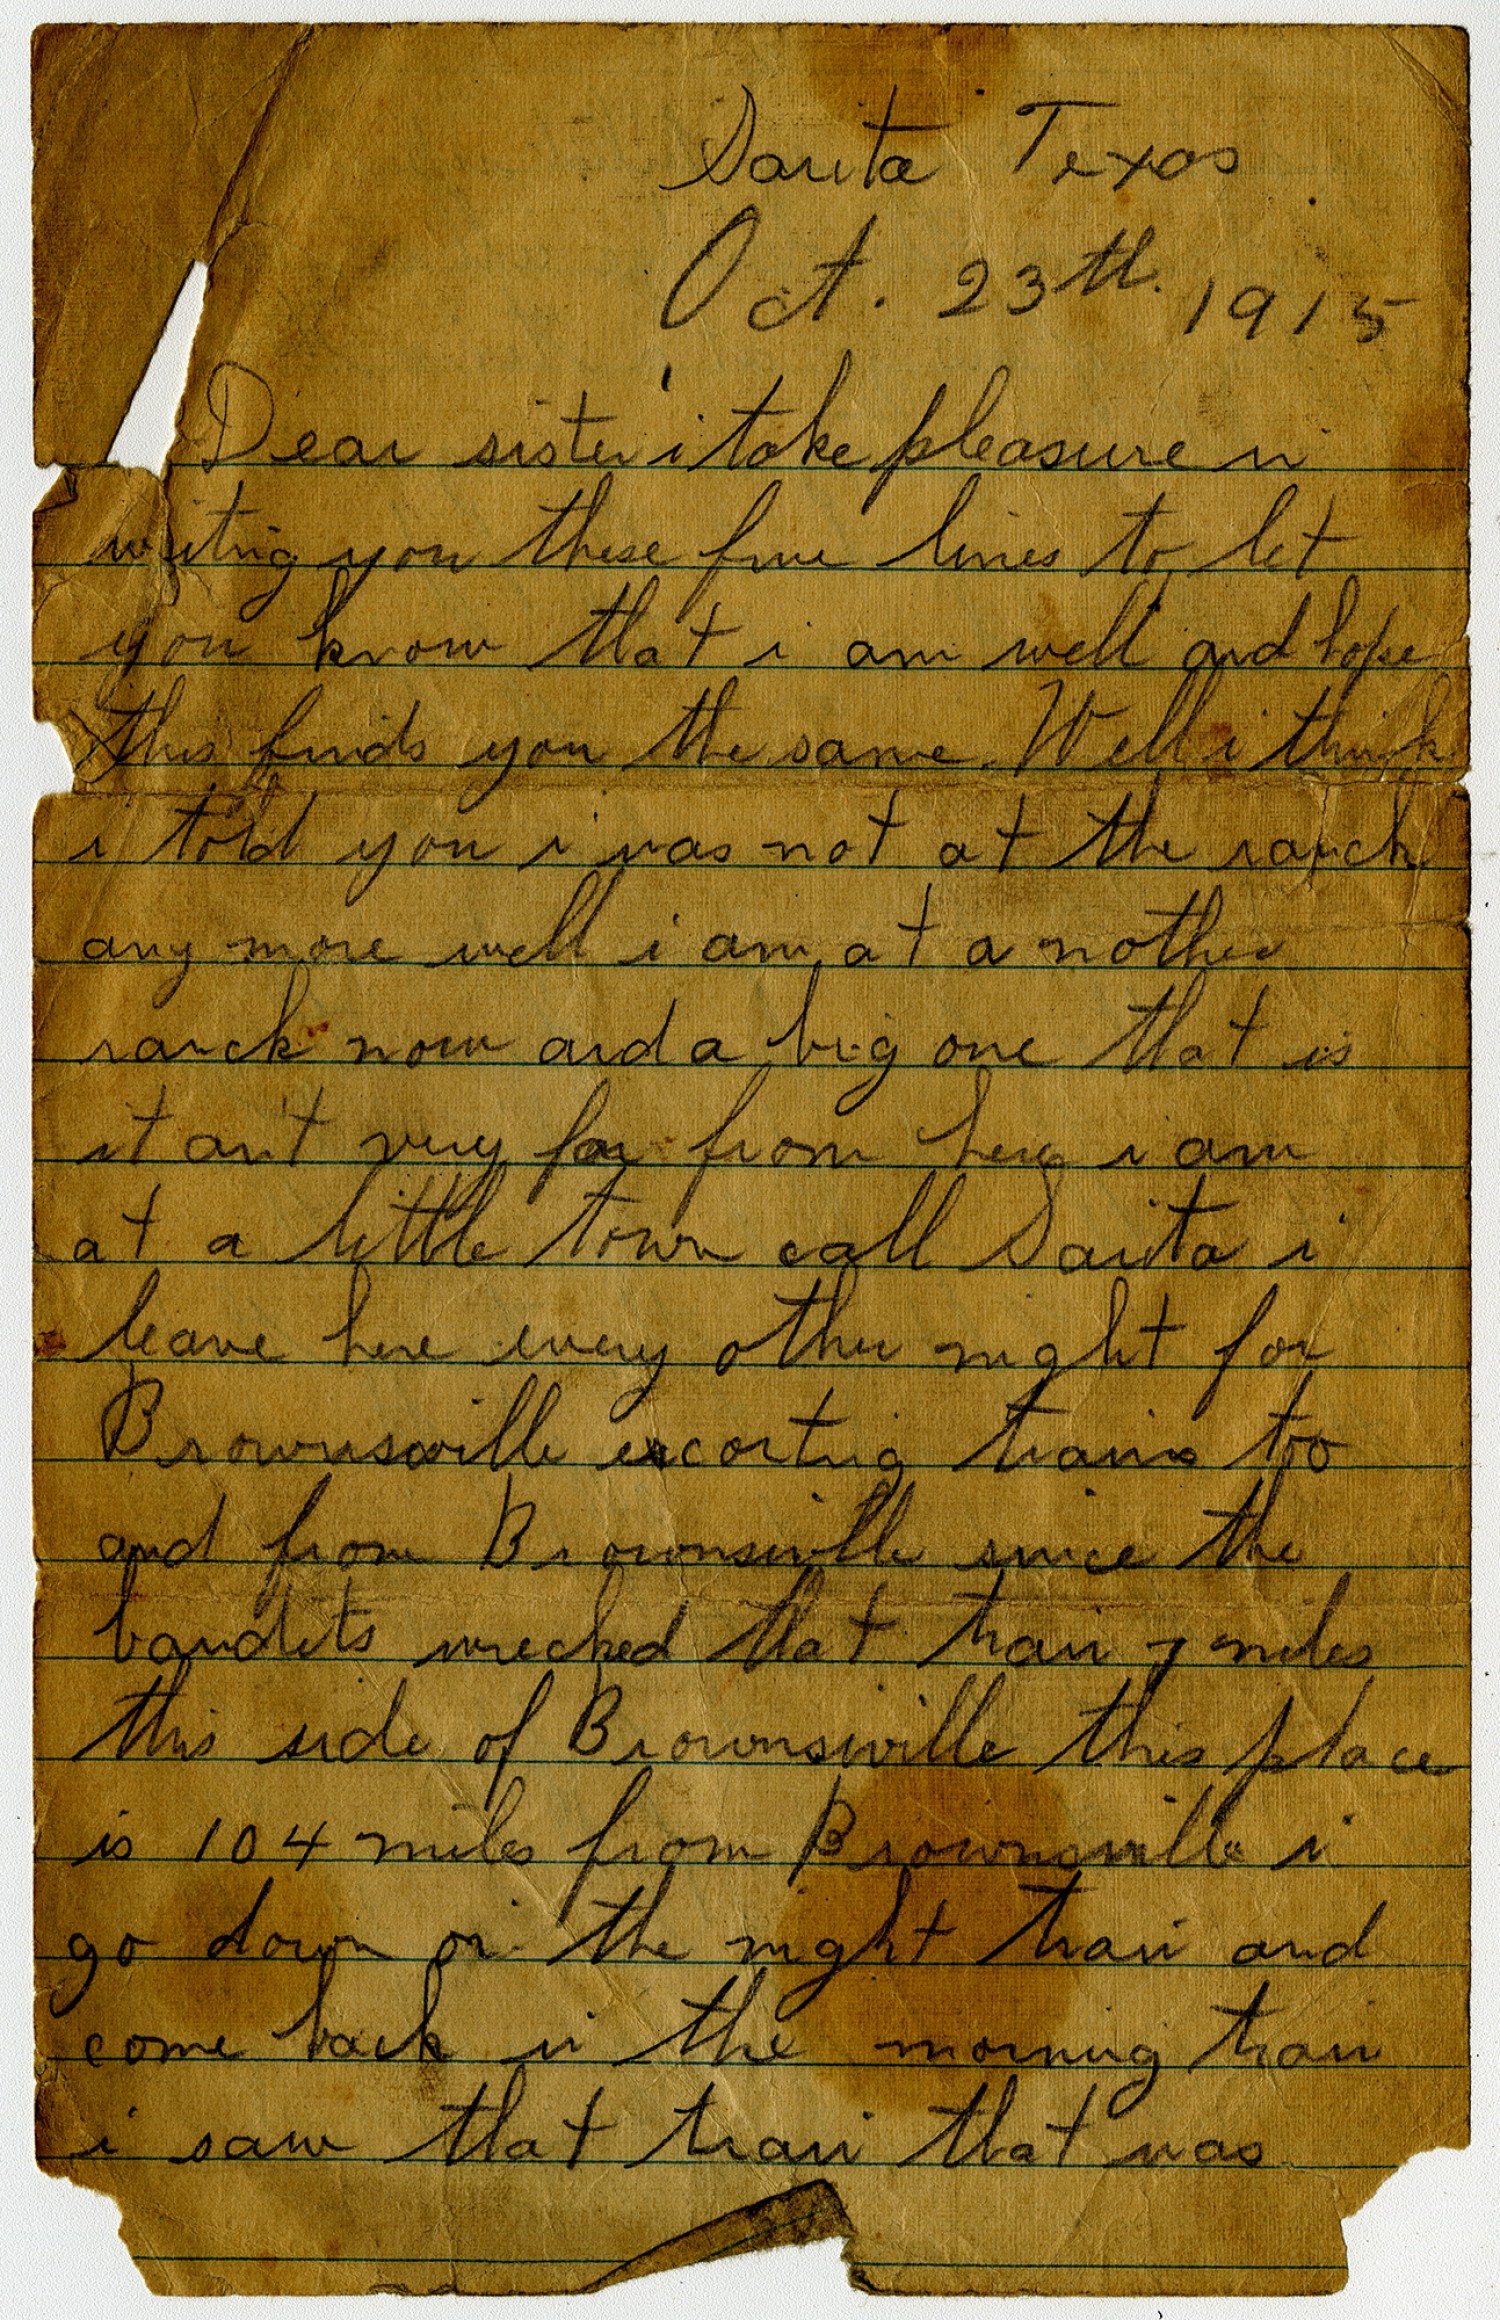 Sarita Texas
Oct. 23th. 1915
Dear sister i take pleasure in
writing you these few lines to let
you know that i am well and hope
this finds you the same. Well i think
i told you i was not at the ranch
any more well i am at a nother
ranck now and a big one that is
it ant very far from here i am
at a little town call Sarita i
leave here every other night for
Brownsville excorting trains too
and from Brownsville since the
bandits wrecked that train 7 miles
this side of Brownsville this place
is 104 miles from Brownsville i
go down on the night train and
come back in the morning train
i saw that train that was